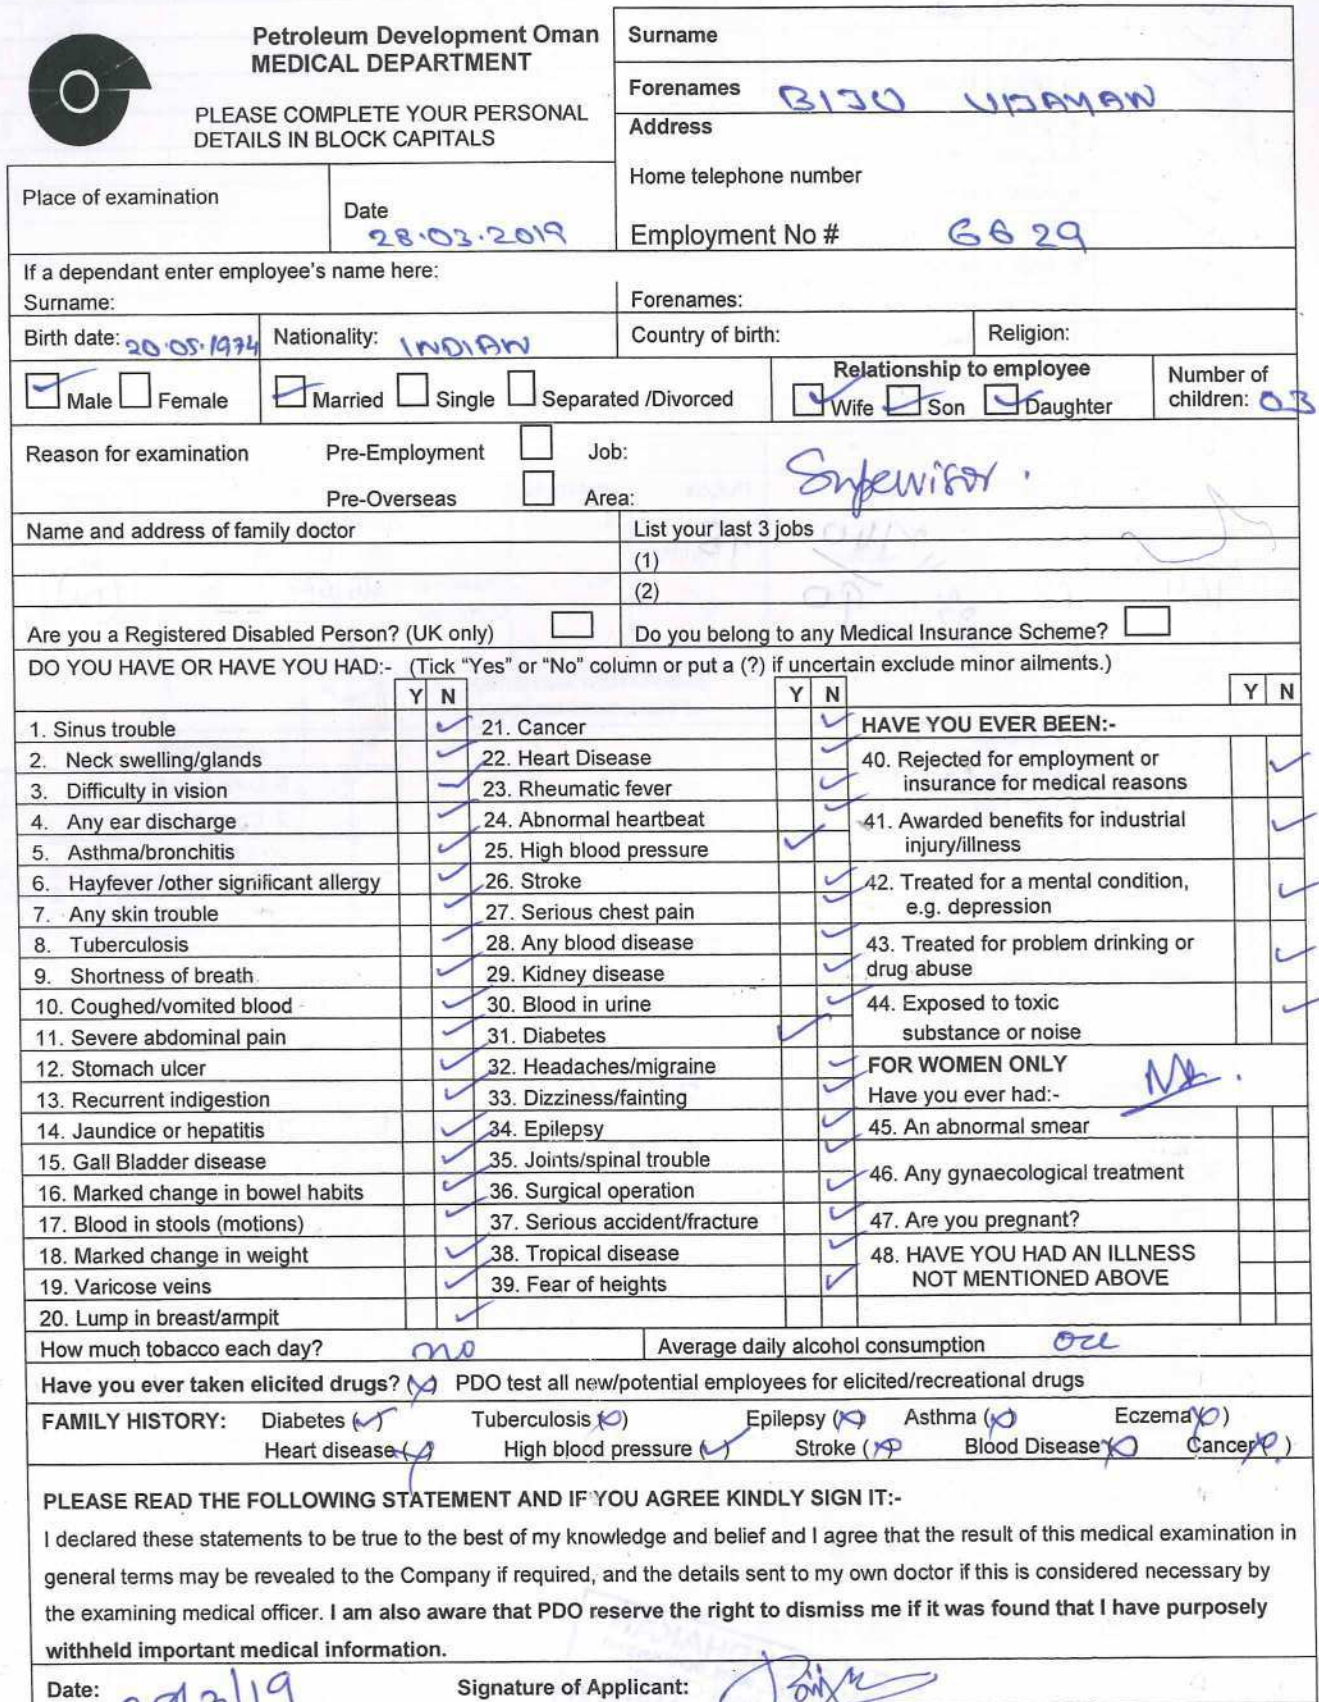 Petroleum Development Oman
MEDICAL DEPARTMENT
PLEASE COMPLETE YOUR PERSONAL
DETAILS IN BLOCK CAPITALS
Surname
Forenames BIJU VIJAYAN
Address
Home telephone number
Employment No # 6629
Place of examination
Date
28.03.2019
If a dependant enter employee's name here:
Surname:
Forenames:
Birth date: 20.05.1974
Nationality: INDIAN
Country of birth:
Religion:
Male Female
Married Single Separated /Divorced
Relationship to employee
Wife Son Daughter
Number of
children: 03
Reason for examination
Pre-Employment
Job:
Supervisor.
Pre-Overseas
Area:
Name and address of family doctor
List your last 3 jobs
(1)
(2)
Are you a Registered Disabled Person? (UK only)
Do you belong to any Medical Insurance Scheme?
DO YOU HAVE OR HAVE YOU HAD:- (Tick "Yes" or "No" column or put a (?) if uncertain exclude minor ailments.)
Y N
1. Sinus trouble
2. Neck swelling/glands
3. Difficulty in vision
4. Any ear discharge
5. Asthma/bronchitis
6. Hayfever /other significant allergy
7. Any skin trouble
8. Tuberculosis
9. Shortness of breath
10. Coughed/vomited blood
11. Severe abdominal pain
12. Stomach ulcer
13. Recurrent indigestion
14. Jaundice or hepatitis
15. Gall Bladder disease
16. Marked change in bowel habits
17. Blood in stools (motions)
18. Marked change in weight
19. Varicose veins
20. Lump in breast/armpit
Y N
21. Cancer
22. Heart Disease
23. Rheumatic fever
24. Abnormal heartbeat
25. High blood pressure
26. Stroke
27. Serious chest pain
28. Any blood disease
29. Kidney disease
30. Blood in urine
31. Diabetes
32. Headaches/migraine
33. Dizziness/fainting
34. Epilepsy
35. Joints/spinal trouble
36. Surgical operation
37. Serious accident/fracture
38. Tropical disease
39. Fear of heights
Y N
HAVE YOU EVER BEEN:-
40. Rejected for employment or
insurance for medical reasons
41. Awarded benefits for industrial
injury/illness
42. Treated for a mental condition,
e.g. depression
43. Treated for problem drinking or
drug abuse
44. Exposed to toxic
substance or noise
FOR WOMEN ONLY
Have you ever had:-
45. An abnormal smear
46. Any gynaecological treatment
47. Are you pregnant?
48. HAVE YOU HAD AN ILLNESS
NOT MENTIONED ABOVE
How much tobacco each day? no
Average daily alcohol consumption occ
Have you ever taken elicited drugs? (x) PDO test all new/potential employees for elicited/recreational drugs
FAMILY HISTORY: Diabetes (✓) Tuberculosis (x) Epilepsy (x) Asthma (x) Eczema (x)
Heart disease (✓) High blood pressure (✓) Stroke (x) Blood Disease (x) Cancer (x)
PLEASE READ THE FOLLOWING STATEMENT AND IF YOU AGREE KINDLY SIGN IT:-
I declared these statements to be true to the best of my knowledge and belief and I agree that the result of this medical examination in
general terms may be revealed to the Company if required, and the details sent to my own doctor if this is considered necessary by
the examining medical officer. I am also aware that PDO reserve the right to dismiss me if it was found that I have purposely
withheld important medical information.
Date:
Signature of Applicant: